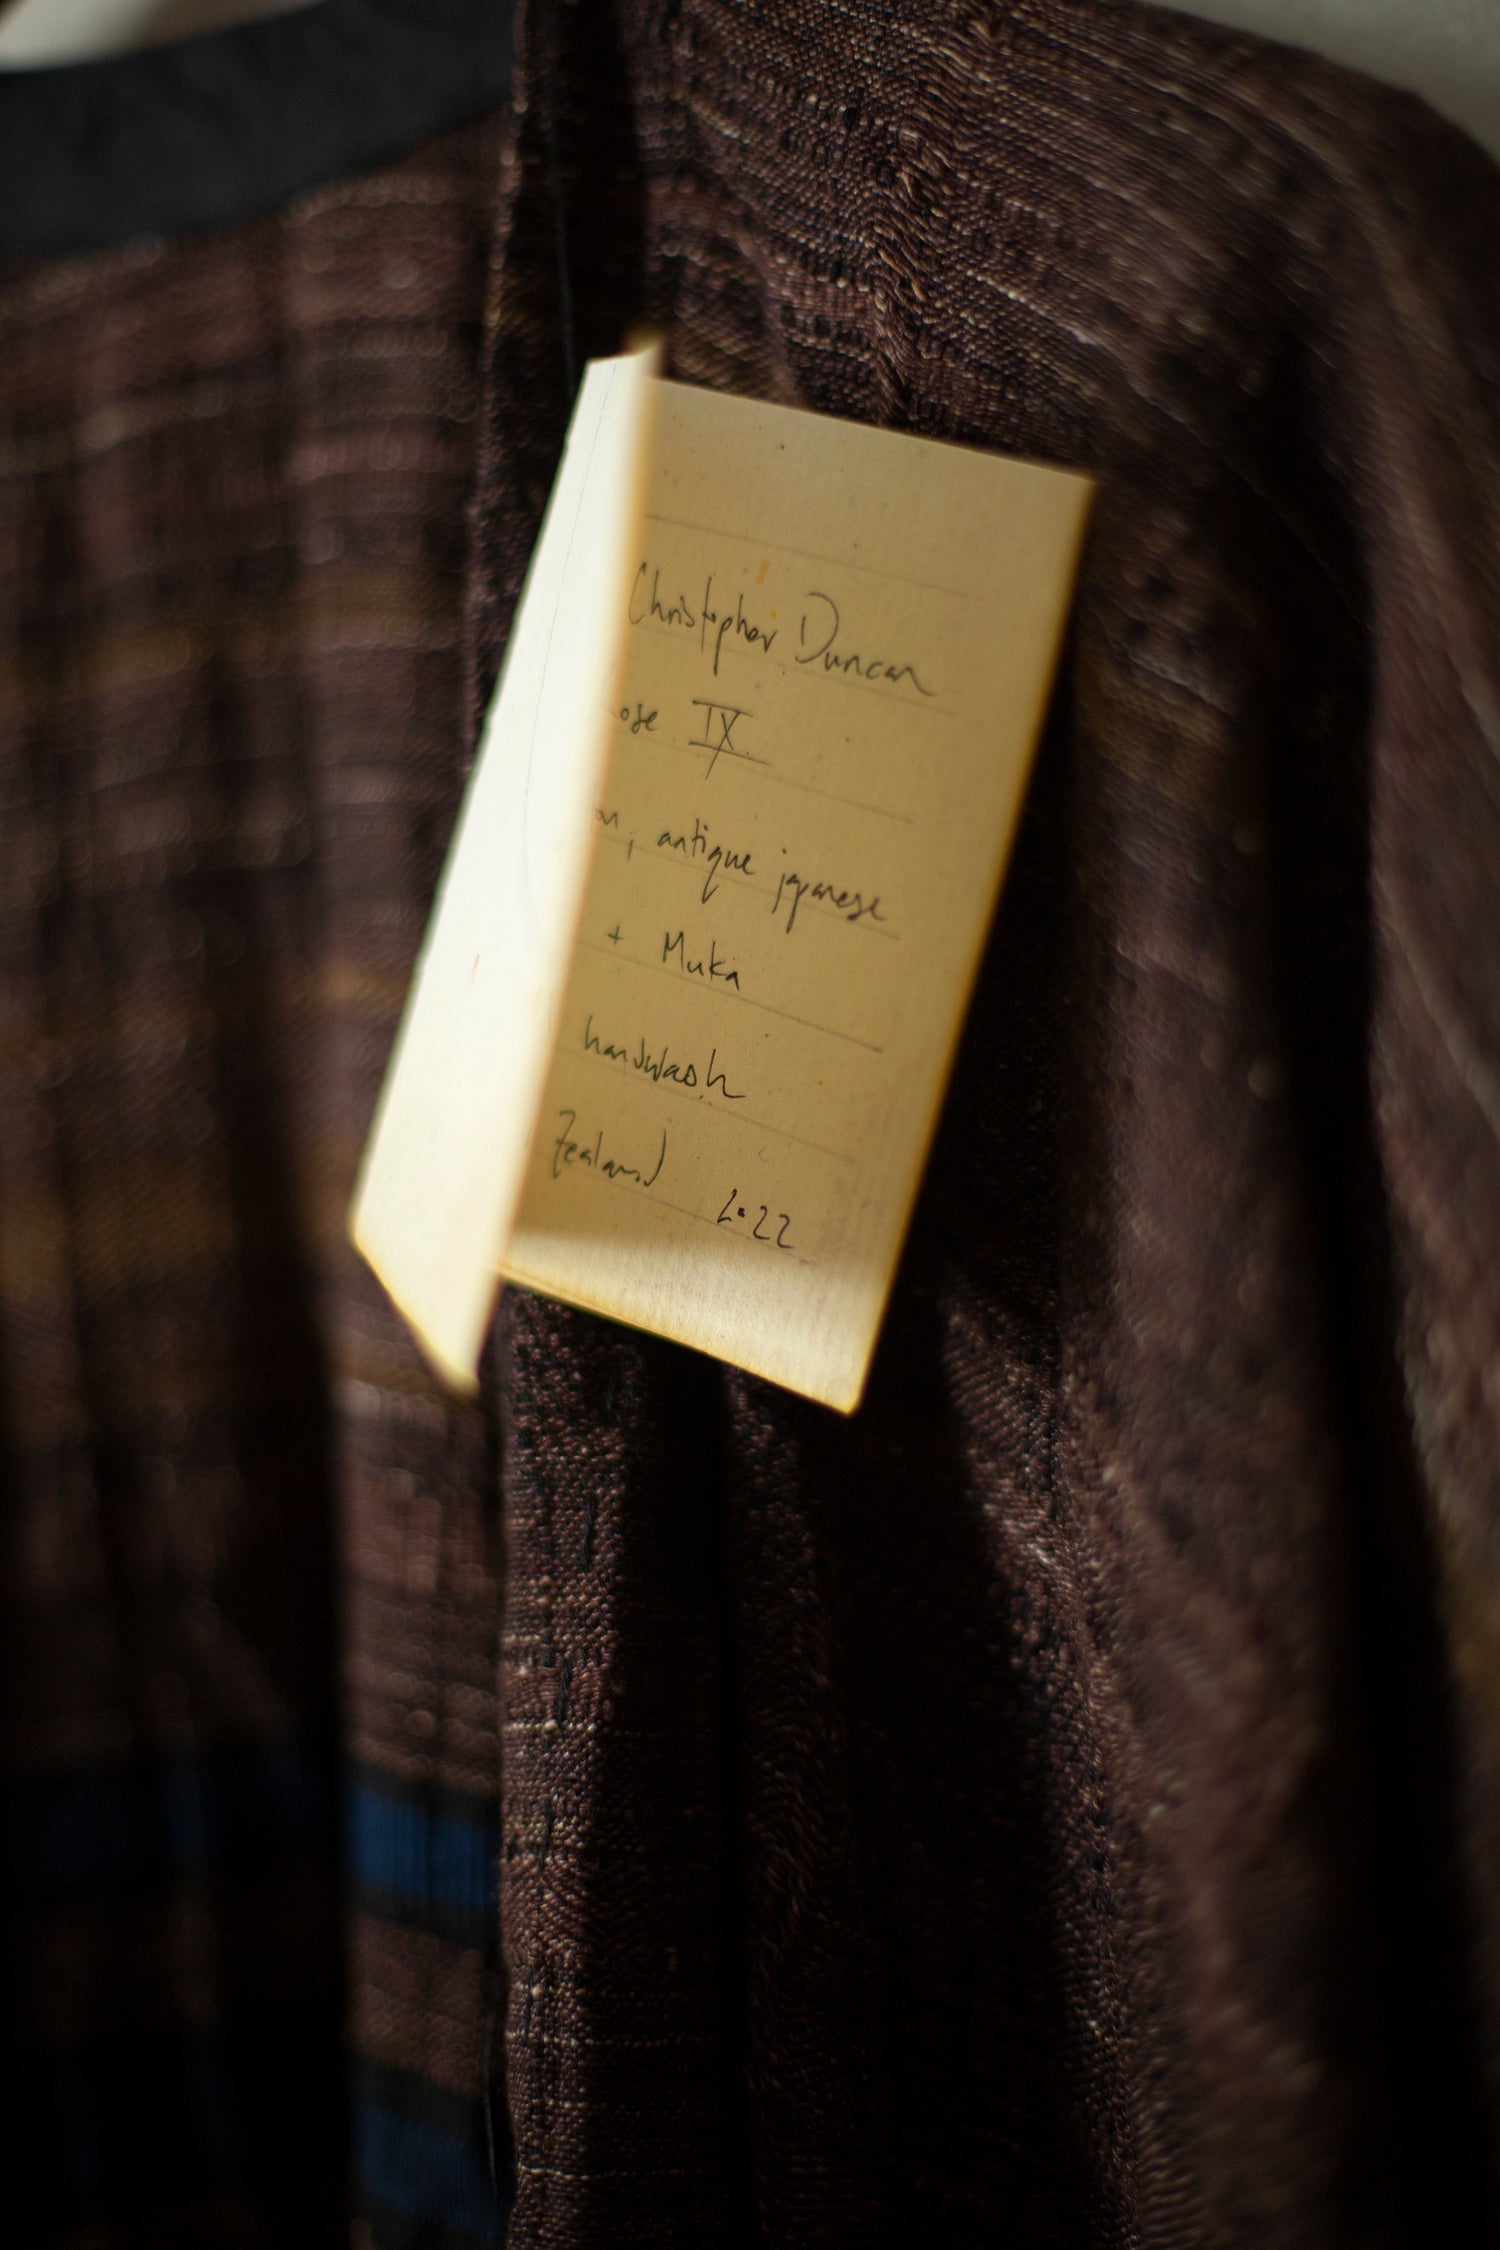 Christopher Duncan
ose IX
on, antique japanese
+ Muka
handwash
Zealand
2.22